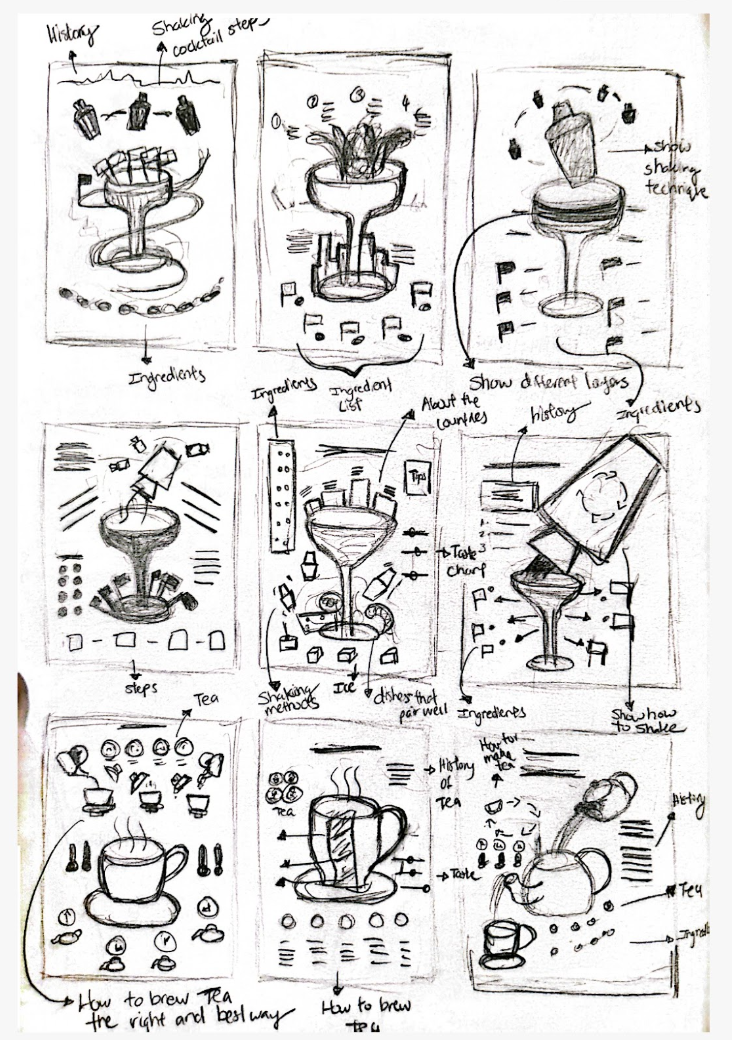 History
Shaking
cocktail steps
1
2
3
4
Show
shaking
technique
Ingredients
Ingredient
List
Show different layers
Ingredients
Ingredients
About the
Countries
history
Tips
Taste
Chart
1
2
3
steps
Shaking
methods
Ice
dishes that
pair well
Ingredients
Show how
to Shake
Tea
Tea
History
of
Tea
Taste
How to
make
tea
History
Tea
How to brew Tea
the right and best way
How to brew
Tea